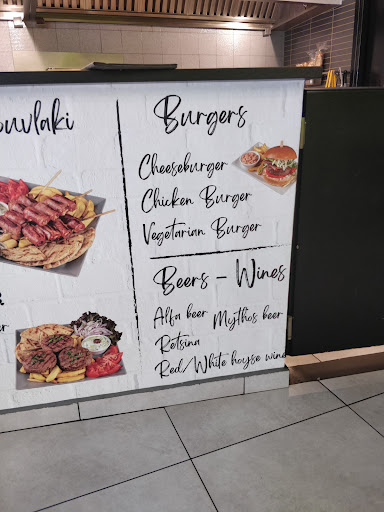 ouvlaki
Burgers
Cheeseburger
Chicken Burger
Vegetarian Burger
Beers - Wines
Alfa beer Mythos beer
Retsina
Red/White hoyse wine
er